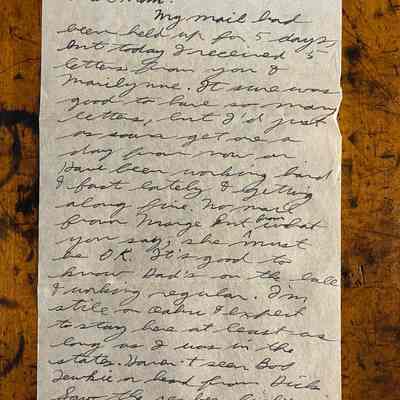 Mom.
My mail had
been held up for 5 days,
but today I received 5
letters from you &
Marilynne. It sure was
good to have so many
letters, but I'd just
as soon get one a
day from now on
Have been working hard
& fast lately & getting
along fine. No mail
from Marge but from what
you say, she must
be OK. It's good to
know Dad's on the ball
& working regular. I'm
still on Oahu & expect
to stay here at least as
long as I was in the
states. Haven't seen Bob
or heard from Dick.
Saw the